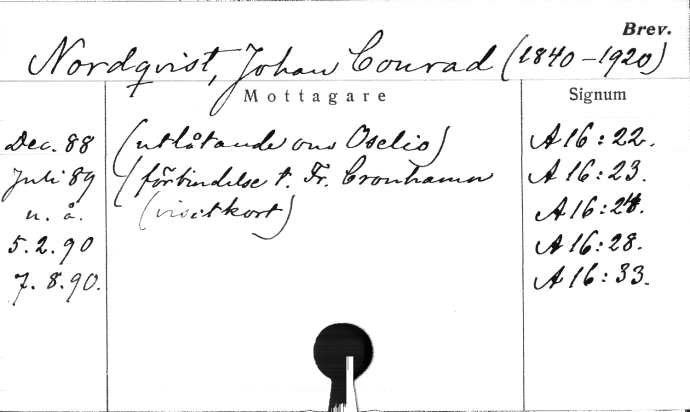 Brev.
Nordqvist, Johan Conrad (1840–1920)
Mottagare Signum
Dec. 88 (utlåtande om Oselio) A 16:22.
Juli 89 (förbindelse t. Fr. Cronhamn A 16:23.
u. å. (visitkort) A 16:24.
5.2.90 A 16:28.
7.8.90. A 16:33.